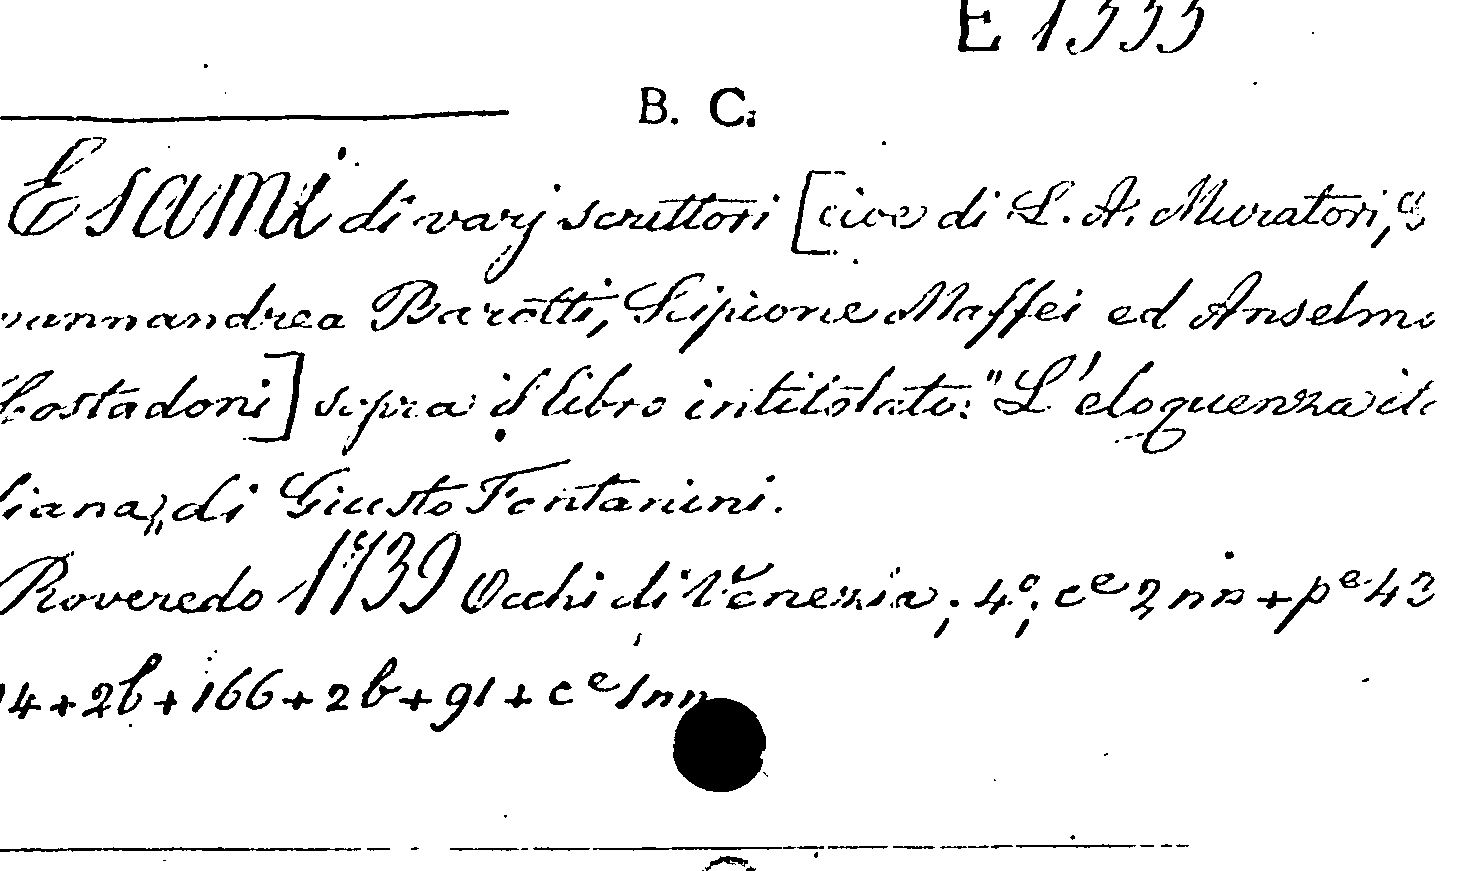 E 1333
B. C.
Esami di varj scrittori [cioe di L. A. Muratori, G
vannandrea Barotti, Scipione Maffei ed Anselmo
Costadoni] sopra il libro intitolato: "L'eloquenza ita
liana" di Giusto Fontanini.
Roveredo 1739 Occhi di Venezia; 4°; cᵉ 2 nn + pᵉ 43
14 + 2b + 166 + 2b + 91 + cᵉ 1 nn